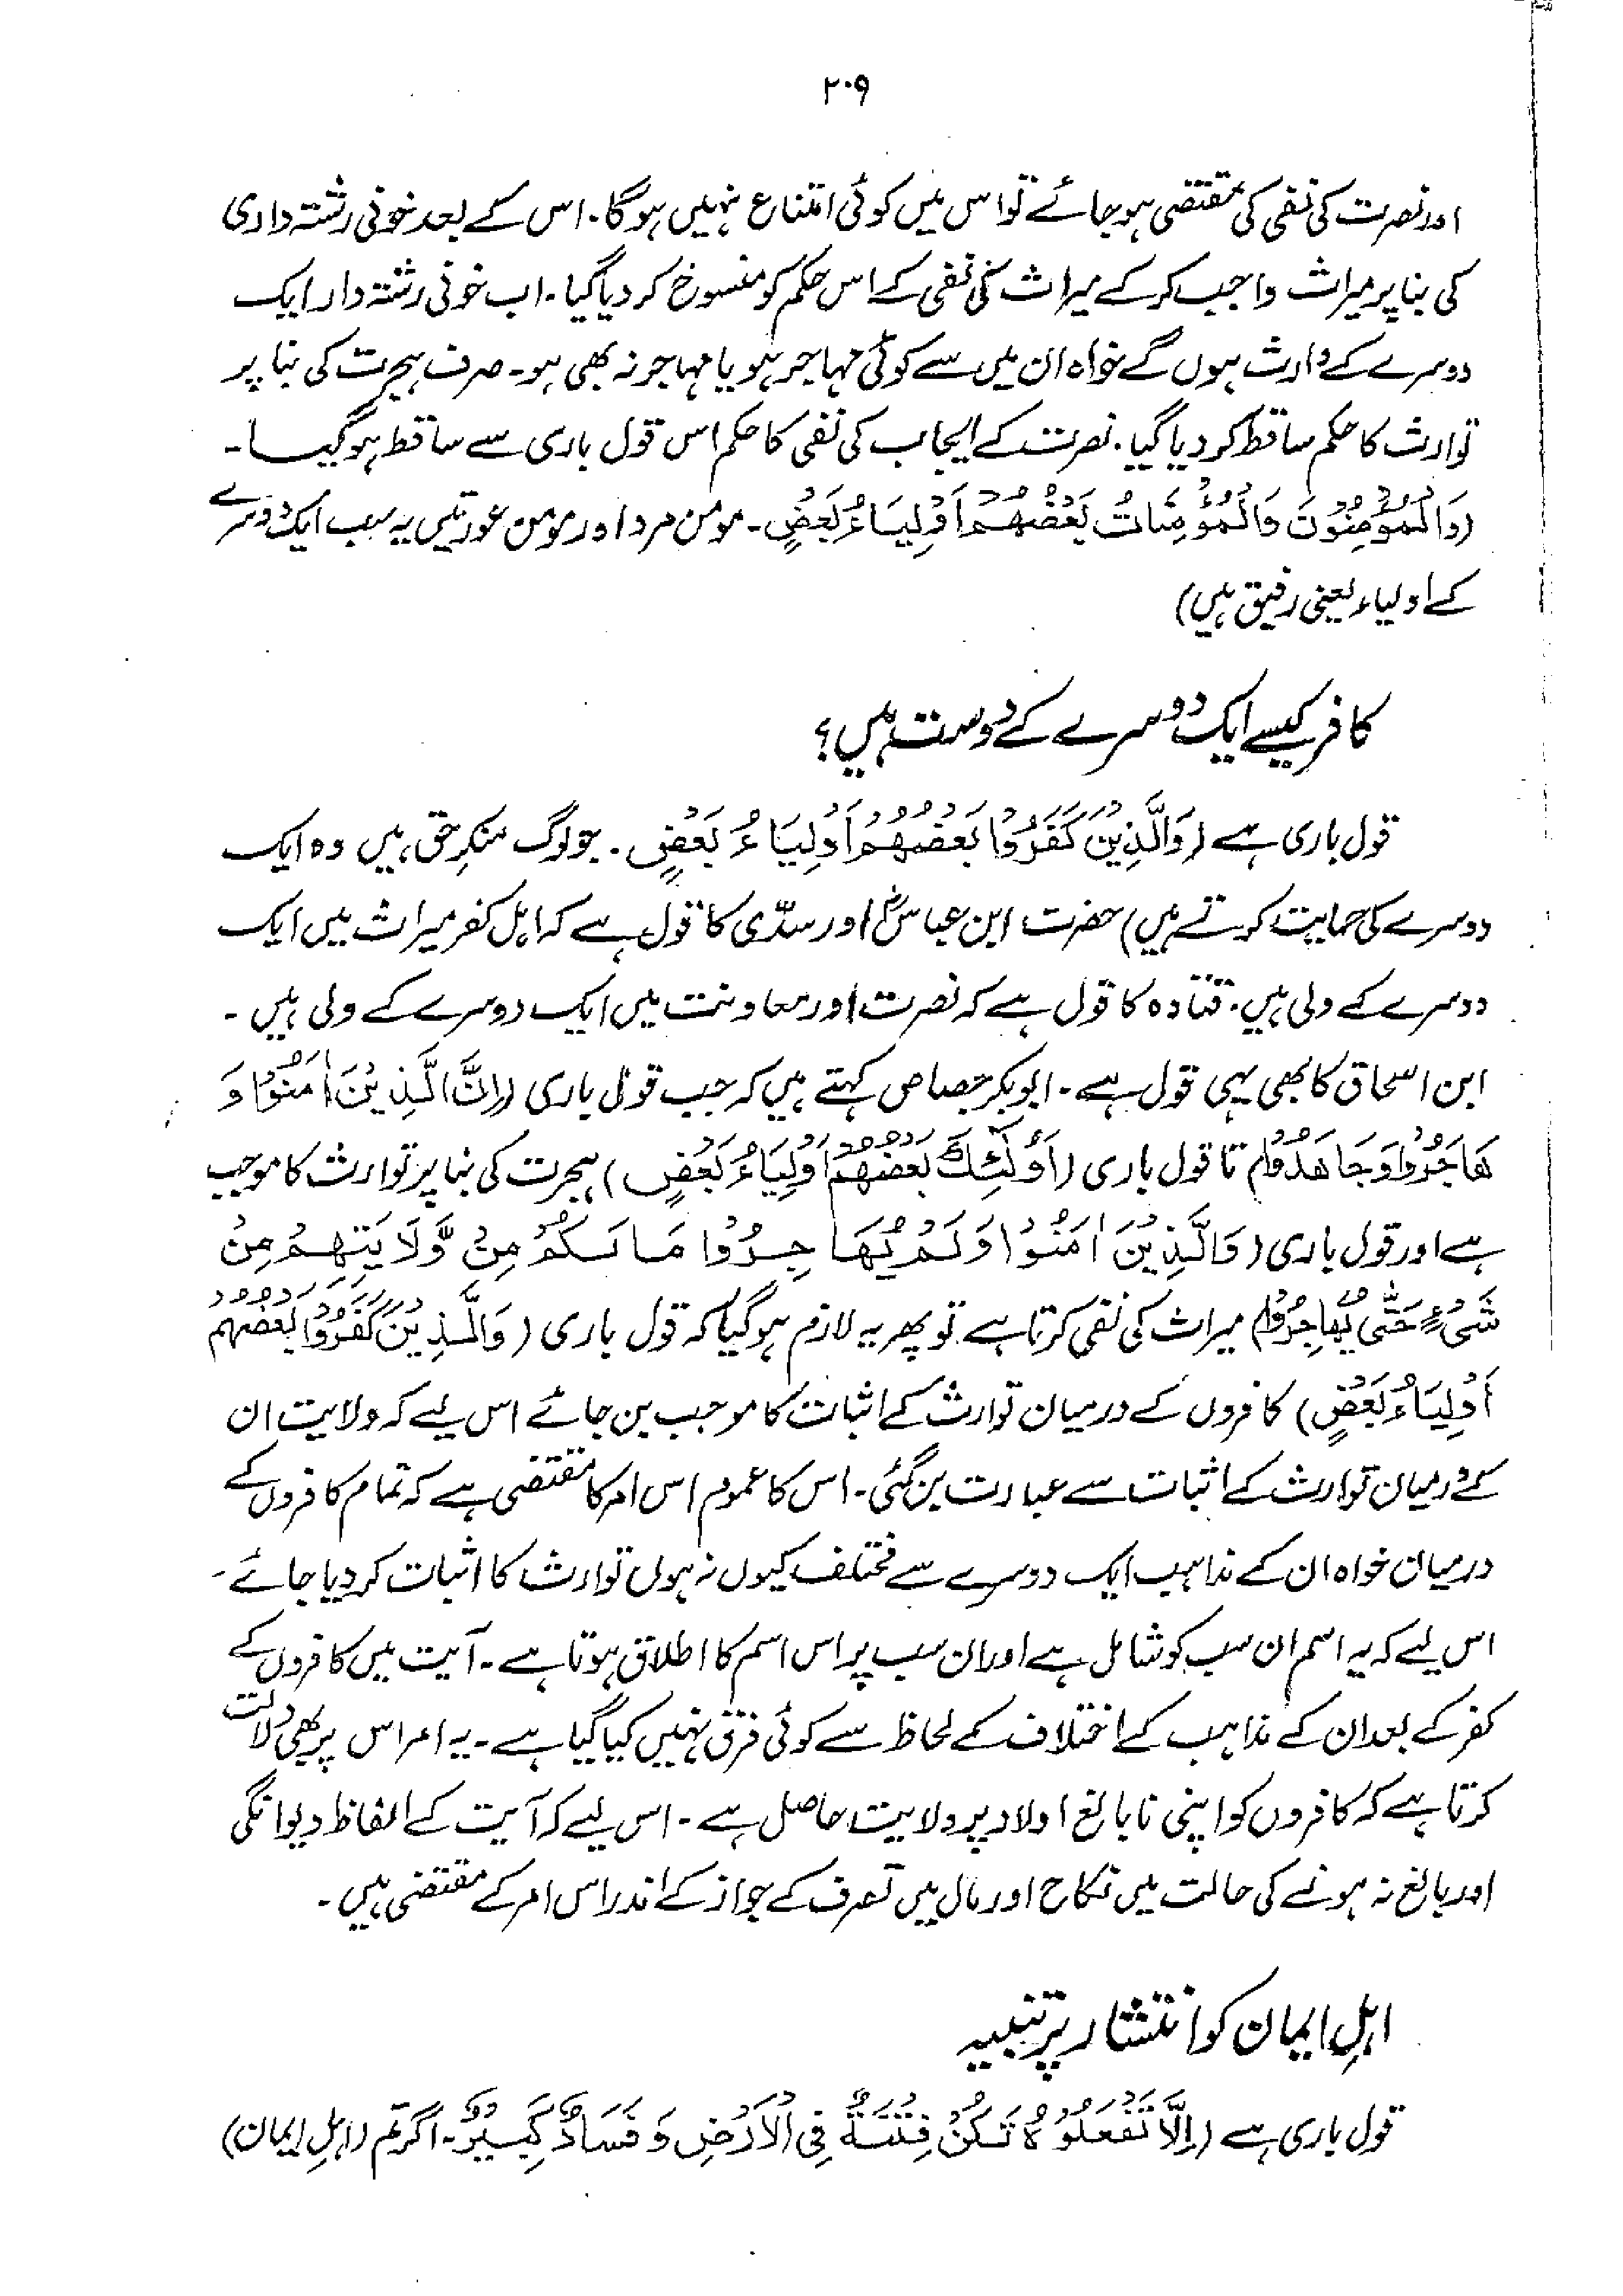 ۲۰۹
اور نصرت کی نفی کی مقتضی ہو جائے تو اس میں کوئی امتناع نہیں ہوگا۔ اس کے بعد خونی رشتہ داری
کی بنا پر میراث واجب کرکے میراث کی نفی کے اس حکم کو منسوخ کر دیا گیا۔ اب خونی رشتہ دار ایک
دوسرے کے وارث ہوں گے خواہ ان میں سے کوئی مہاجر ہو یا مہاجر نہ بھی ہو۔ صرف ہجرت کی بنا پر
توارث کا حکم ساقط کر دیا گیا۔ نصرت کے ایجاب کی نفی کا حکم اس قول باری سے ساقط ہو گیا۔
(وَالْمُؤْمِنُوْنَ وَالْمُؤْمِنَاتُ بَعْضُهُمْ اَوْلِيَاءُ بَعْضٍ۔ مومن مرد اور مومن عورتیں یہ سب ایک دوسرے
کے اولیاء یعنی رفیق ہیں)
کافر کیسے ایک دوسرے کے دوست ہیں؟
قول باری ہے (وَالَّذِيْنَ كَفَرُوْا بَعْضُهُمْ اَوْلِيَاءُ بَعْضٍ۔ جو لوگ منکرِ حق ہیں وہ ایک
دوسرے کی حمایت کرتے ہیں) حضرت ابن عباسؓ اور سدّی کا قول ہے کہ اہل کفر میراث میں ایک
دوسرے کے ولی ہیں۔ قتادہ کا قول ہے کہ نصرت اور معاونت میں ایک دوسرے کے ولی ہیں۔
ابن اسحاق کا بھی یہی قول ہے۔ ابوبکر جصاص کہتے ہیں کہ جب قول باری (اِنَّ الَّذِيْنَ اٰمَنُوْا وَ
هَاجَرُوْا وَجَاهَدُوْا) تا قول باری (اُولٰئِكَ بَعْضُهُمْ اَوْلِيَاءُ بَعْضٍ) ہجرت کی بنا پر توارث کا موجب
ہے اور قول باری (وَالَّذِيْنَ اٰمَنُوْا وَلَمْ يُهَاجِرُوْا مَا لَكُمْ مِنْ وَّلَايَتِهِمْ مِنْ
شَیْءٍ حَتّٰى يُهَاجِرُوْا) میراث کی نفی کرتا ہے تو پھر یہ لازم ہو گیا کہ قول باری (وَالَّذِيْنَ كَفَرُوْا بَعْضُهُمْ
اَوْلِيَاءُ بَعْضٍ) کافروں کے درمیان توارث کے اثبات کا موجب بن جائے اس لیے کہ ولایت ان
کے درمیان توارث کے اثبات سے عبارت بن گئی۔ اس کا عموم اس امر کا مقتضی ہے کہ تمام کافروں کے
درمیان خواہ ان کے مذاہب ایک دوسرے سے مختلف کیوں نہ ہوں توارث کا اثبات کر دیا جائے۔
اس لیے کہ یہ اسم ان سب کو شامل ہے اور ان سب پر اس اسم کا اطلاق ہوتا ہے۔ آیت میں کافروں کے
کفر کے بعد ان کے مذاہب کے اختلاف کے لحاظ سے کوئی فرق نہیں کیا گیا ہے۔ یہ امر اس پر بھی دلالت
کرتا ہے کہ کافروں کو اپنی نابالغ اولاد پر ولایت حاصل ہے۔ اس لیے کہ آیت کے الفاظ دیوانگی
اور بالغ نہ ہونے کی حالت میں نکاح اور مال میں تصرف کے جواز کے اندر اس امر کے مقتضی ہیں۔
اہلِ ایمان کو انتشار پر تنبیہ
قول باری ہے (اِلَّا تَفْعَلُوْهُ تَكُنْ فِتْنَةٌ فِى الْاَرْضِ وَ فَسَادٌ كَبِيْرٌ۔ اگر تم (اہلِ ایمان)